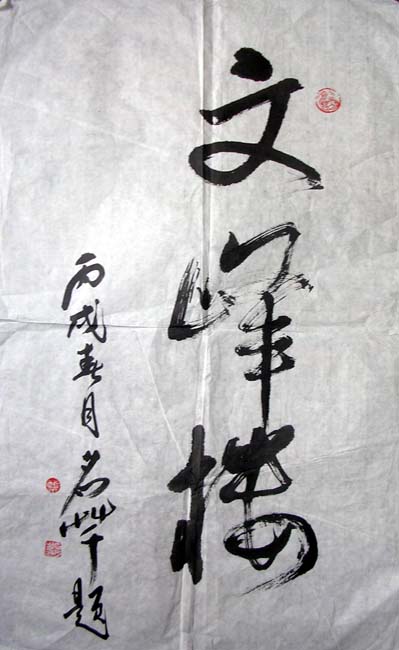 文峰楼
丙戌春月名华题